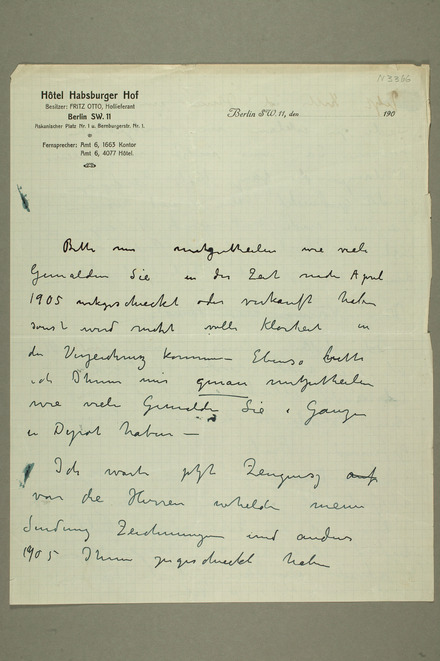 N 3366
Hôtel Habsburger Hof
Besitzer: FRITZ OTTO, Hoflieferant
Berlin SW. 11
Askanischer Platz Nr. 1 u. Bernburgerstr. Nr. 1.
Fernsprecher: Amt 6, 1663 Kontor
Amt 6, 4077 Hôtel.
Berlin SW. 11, den 190
Bitte mir mitzutheilen wie viele
Gemälden Sie in der Zeit nach April
1905 oder verkauft haben
sonst wird nicht volle Klarheit in
die Verzeichniz kommen – Ebenso bitte
ich Ihnen mir genau mitzutheilen
wie viele Gemälde Sie i Ganzen
in Depot haben –
Ich jetzt auf
von die Herren welche meine
Sendung Zeichnungen und andres
1905 Ihnen zugeschickt haben